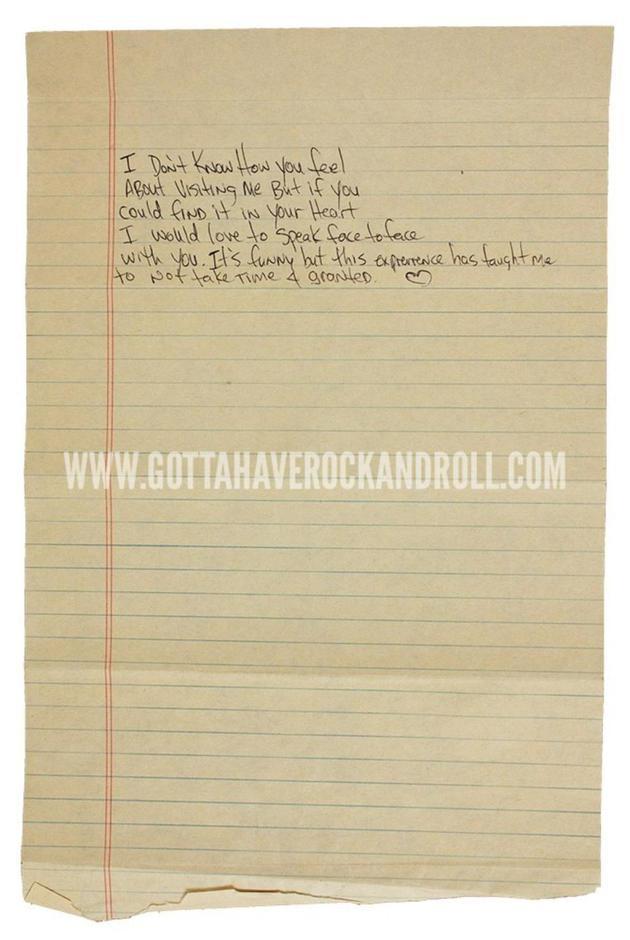 I Don't Know How you feel
About Visiting Me But if you
could find it in your Heart
I would love to speak face to face
with you. It's funny but this exprerrence has taught me
to Not take Time 4 granted. ♡
WWW.GOTTAHAVEROCKANDROLL.COM